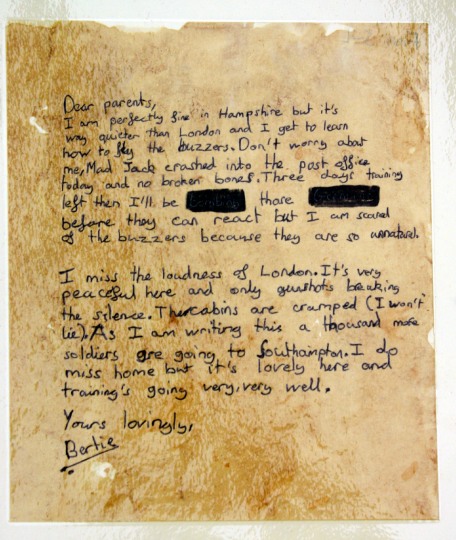 Dear parents,
I am perfectly fine in Hampshire but it's
way quieter than London and I get to learn
how to fly the buzzers. Don't worry about
me, Mad Jack crashed into the post office
today and no broken bones. Three days training
left then I'll be those
before they can react but I am scared
of the buzzers because they are so unnatural.
I miss the loudness of London. It's very
peaceful here and only gunshots breaking
the silence. The cabins are cramped (I won't
lie). As I am writing this a thousand more
soldiers are going to Southampton. I do
miss home but it's lovely here and
training's going very, very well.
Yours lovingly,
Bertie